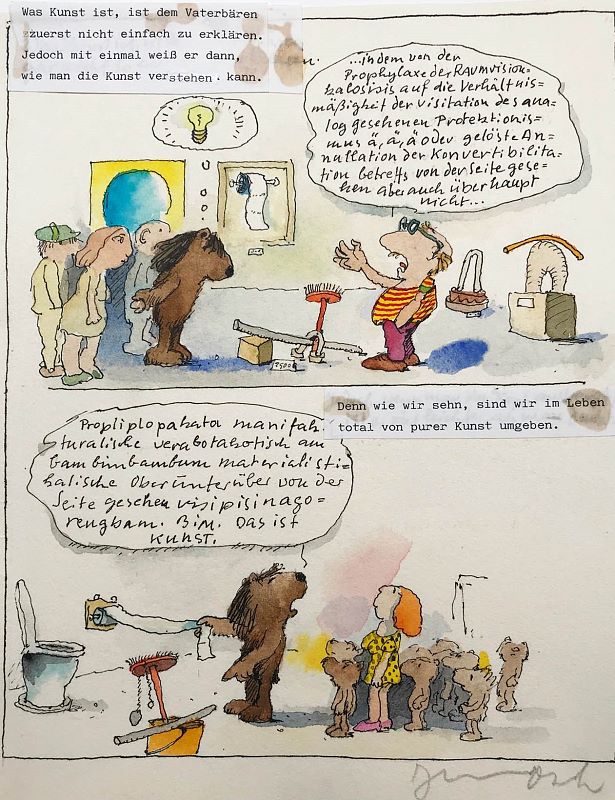 Was Kunst ist, ist dem Vaterbären
zzuerst nicht einfach zu erklären.
Jedoch mit einmal weiß er dann,
wie man die Kunst verstehen. kann.
...indem von der
Prophylaxe der Raumvision=
balosisis auf die Verhältnis=
mäßigkeit der visitation des ana=
log gesehenen Protektionis=
mus ä, ä, ä oder gelöste An=
nullation der Konvertibilita=
tion betreffs von der Seite gese=
hen aber auch überhaupt
nicht...
7500
Denn wie wir sehn, sind wir im Leben
total von purer Kunst umgeben.
Propliplopakata manifak=
turalische verabotabotisch am
bambimbambum materialisti=
kalische Ober Unterüber von der
Seite gesehen visipisinago=
rengbam. Bim. Das ist
KUNST.
Janosch